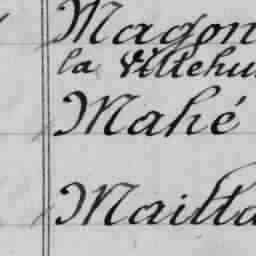 Magon
la Villehu
Mahé
Mailla